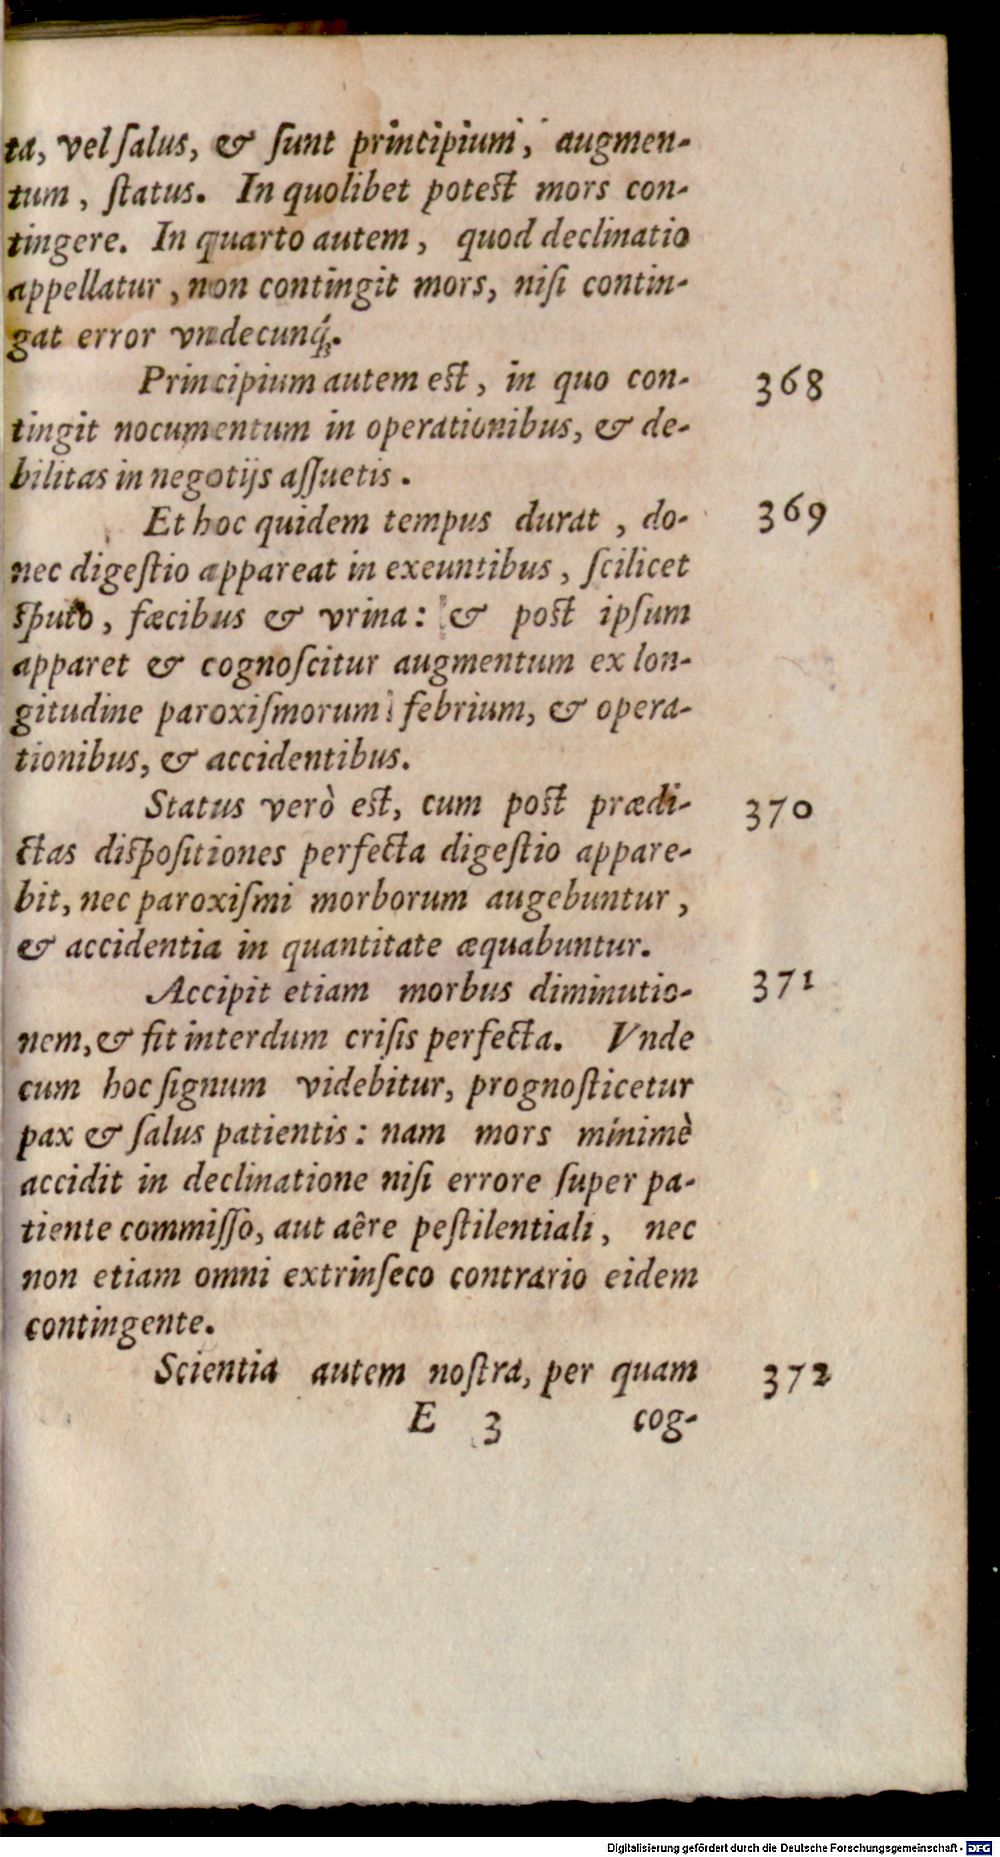 ta, vel ſalus, & ſunt principium, augmen-
tum, ſtatus. In quolibet poteſt mors con-
tingere. In quarto autem, quod declinatio
appellatur, non contingit mors, niſi contin-
gat error vndecunq́;.
Principium autem eſt, in quo con- 368
tingit nocumentum in operationibus, & de-
bilitas in negotijs aſſuetis.
Et hoc quidem tempus durat, do- 369
nec digeſtio appareat in exeuntibus, ſcilicet
ſputo, fæcibus & vrina: & poſt ipſum
apparet & cognoſcitur augmentum ex lon-
gitudine paroxiſmorum febrium, & opera-
tionibus, & accidentibus.
Status verò eſt, cum poſt prædi- 370
ctas diſpoſitiones perfecta digeſtio appare-
bit, nec paroxiſmi morborum augebuntur,
& accidentia in quantitate æquabuntur.
Accipit etiam morbus diminutio- 371
nem, & fit interdum criſis perfecta. Vnde
cum hoc ſignum videbitur, prognoſticetur
pax & ſalus patientis: nam mors minimè
accidit in declinatione niſi errore ſuper pa-
tiente commiſſo, aut aêre peſtilentiali, nec
non etiam omni extrinſeco contrario eidem
contingente.
Scientia autem noſtra, per quam 372
E 3 cog-
Digitalisierung gefördert durch die Deutsche Forschungsgemeinschaft - DFG